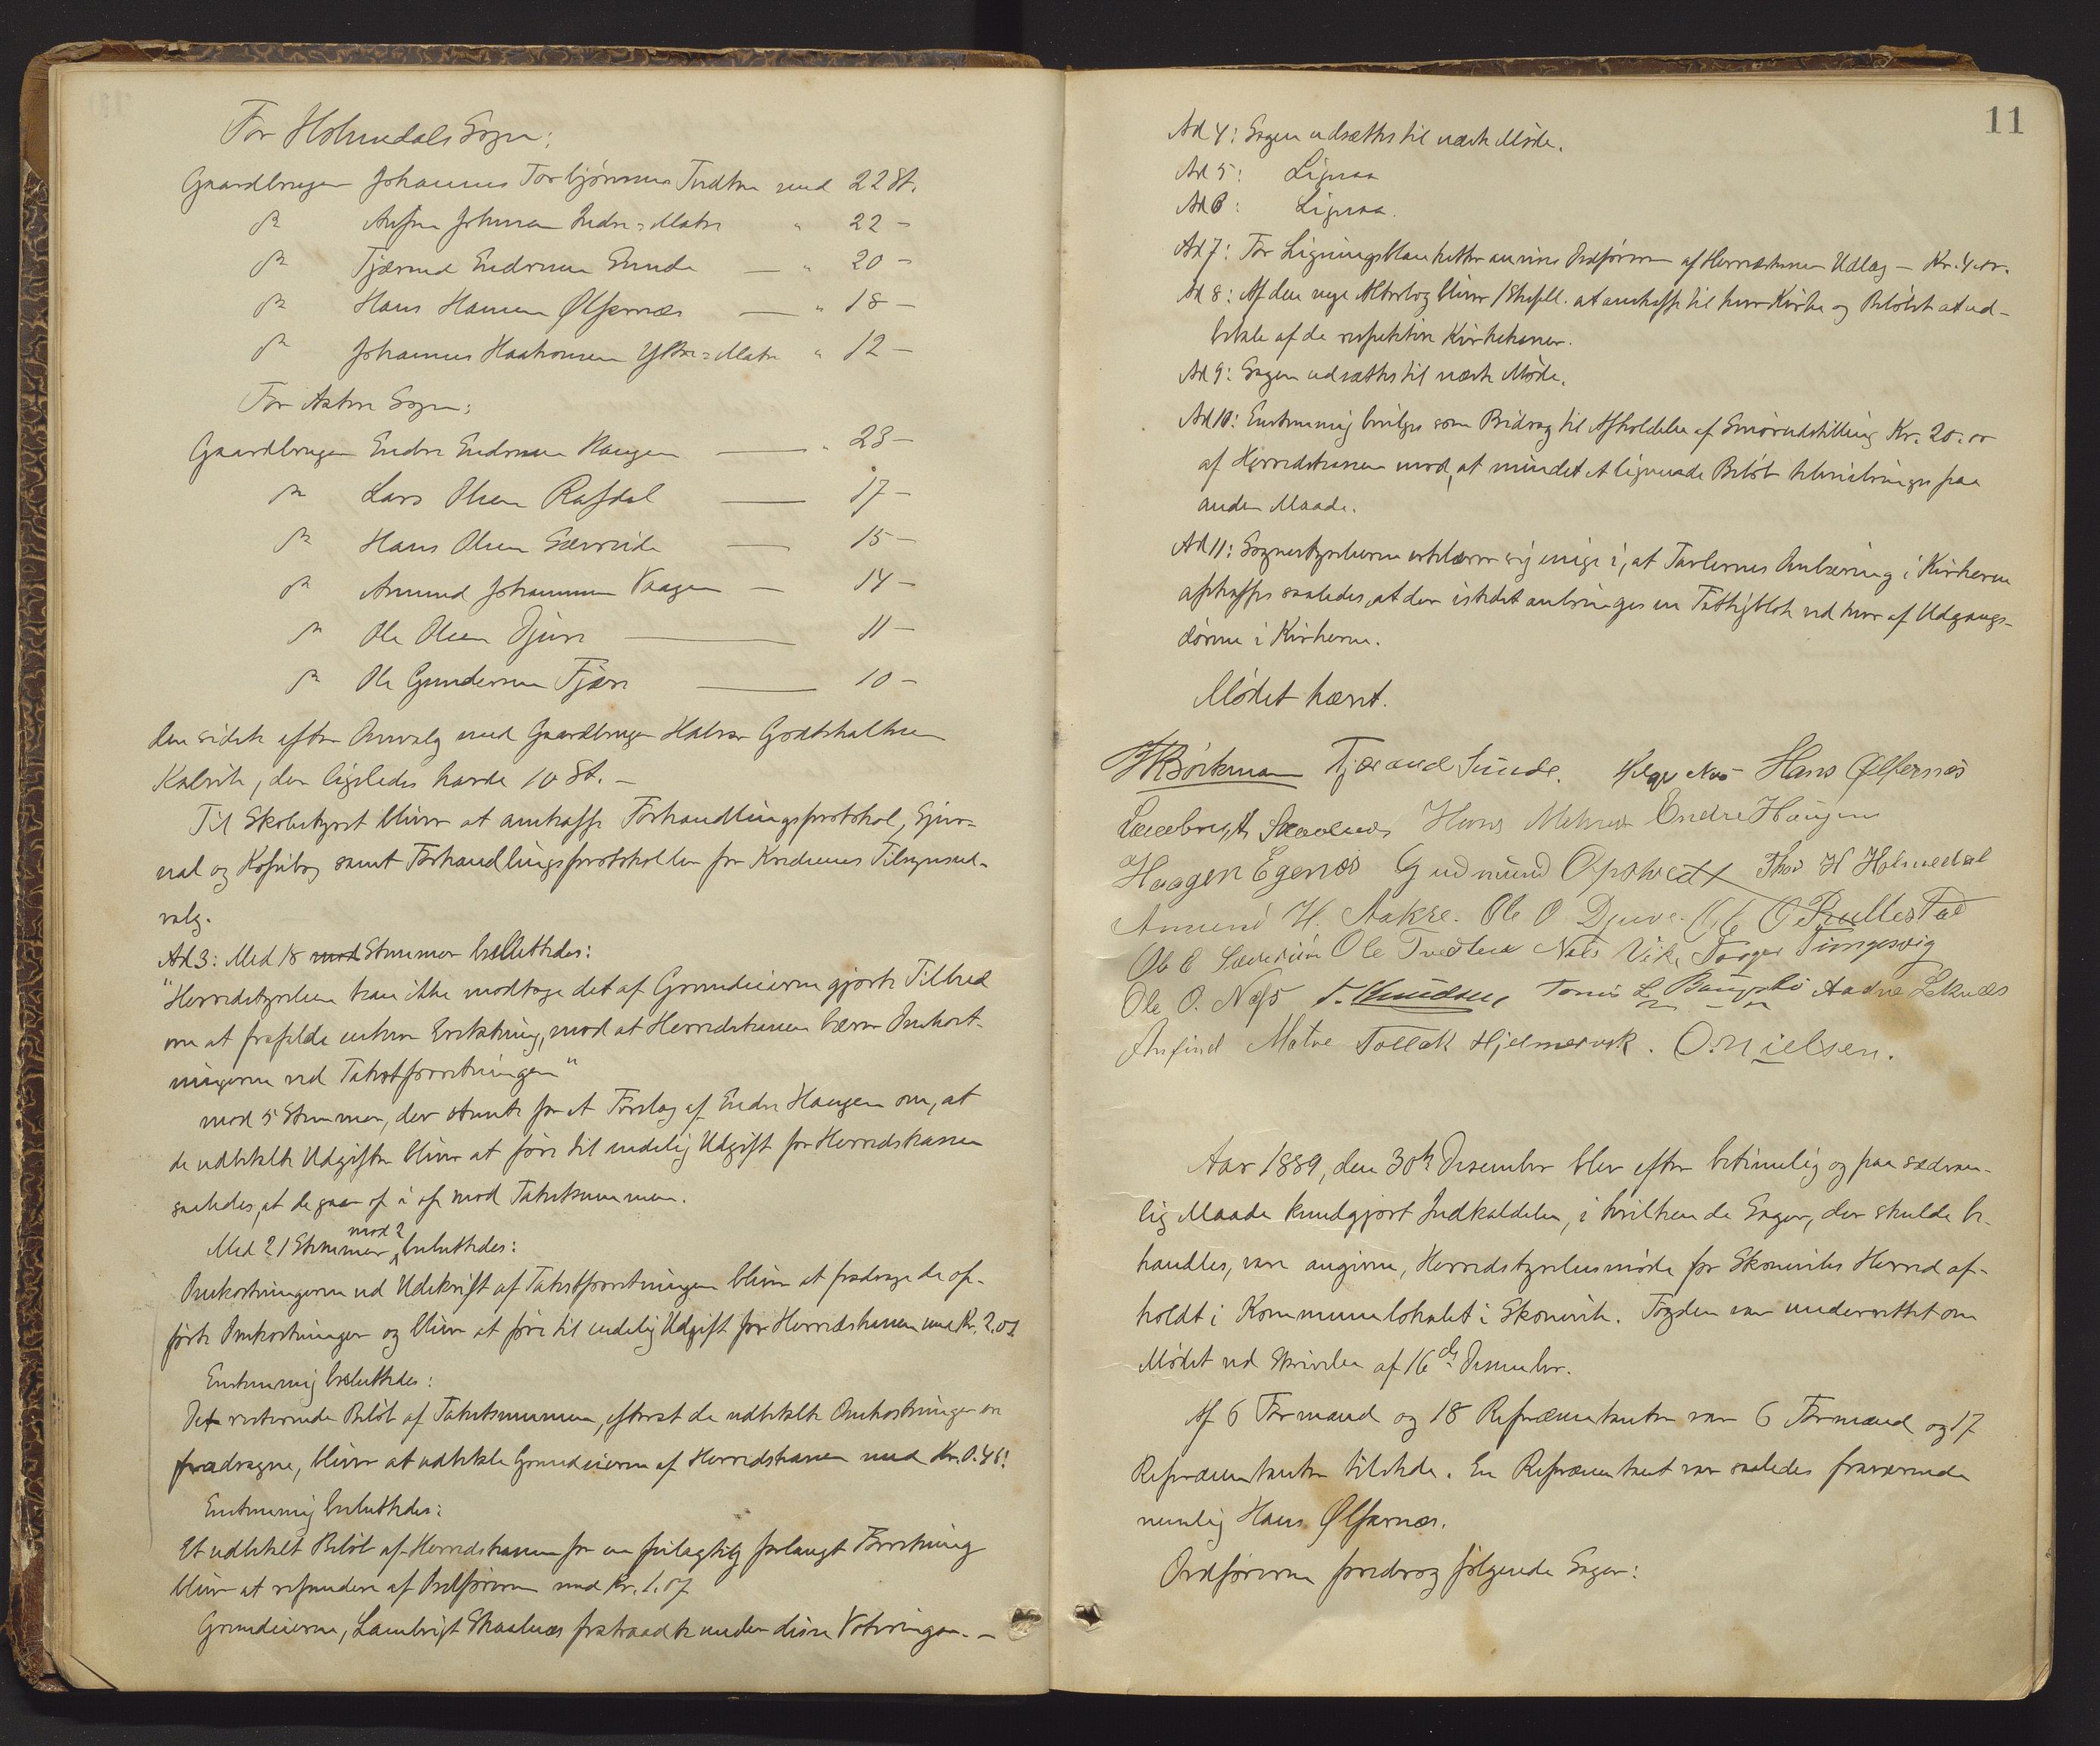 For Holmedals Sogn:
Gaardbruger Johannes Torbjørnsen Tvedten med 22 St.
do Anfin Johnsen Indre=Matre " 22 –
do Tjærand Endresen Sunde — " 20 –
do Hans Hansen Ølfernæs — " 18 –
do Johannes Haakonsen Ytre=Matre " 12 –
For Aakre Sogn:
Gaardbruger Endre Endresen Haugen — " 23 –
do Lars Olsen Rafdal — 17 –
do Hans Olsen Sævereide — 15 –
do Amund Johannesen Vaagen — 14 –
do Ole Olsen Djuve — 11 –
do Ole Gundersen Fjære — 10 –
den sidste efter Omvalg med Gaardbruger Halvor Godtskalksen
Kalvik, der ligeledes havde 10 St. –
Til Skolestyret bliver at anskaffe Forhandlingsprotokol, Sjur-
nal og Kopibog samt Forhandlingsprotokoller for Kredsenes Tilsynsud-
valg.
Ad 3: Med 18 mod Stemmer besluttedes:
"Herredstyrelsen kan ikke modtage det af Grundeierne gjorte Tilbud
om at frafalde enhver Erstatning, mod at Herredskassen bærer Omkost-
ningerne ved Takstforretningen"
mod 5 Stemmer, der stemte for et Forslag af Endre Haugen om, at
de udbetalte Udgifter bliver at føre til endelig Udgift for Herredskassen
saaledes, at de gaar op i op mod Takstsummen.
Med 21 Stemmer mod 2 besluttedes:
Omkostningerne ved Udskrift af Takstforretningen bliver at fradrage de op-
førte Omkostninger og bliver at føre til endelig Udgift for Herredskassen med Kr. 2.01
Enstemmig besluttedes:
Det resterende Beløb af Takstsummen, efterat de udbetalte Omkostninger er
fradragne, bliver at udbetale Grundeierne af Herredskassen med Kr. 0.46!
Enstemmig besluttedes:
Et udbetalt Beløb af Herredskassen for en feilagtig forlangt Forretning
bliver at refundere af Ordføreren med Kr. 1.07
Grundeieren, Lambrigt Skaalnæs fratraadte under disse Voteringer. –
11
Ad 4: Sagen udsættes til næste Møde.
Ad 5: Ligesaa
Ad 6: Ligesaa.
Ad 7: For Ligningsblanketter anvises Ordføreren af Herredskassen Udlæg – Kr. 4.00.
Ad 8: Af den nye Alterbog bliver 1 Expl. at anskaffe til hver Kirke og Beløbet at ud-
betale af de respektive Kirkekasser.
Ad 9: Sagen udsættes til næste Møde.
Ad 10: Enstemmig bevilges som Bidrag til Afholdelse af Smørudstilling Kr. 20.00
af Herredskassen mod, at mindst et lignende Beløb tilveiebringes paa
anden Maade.
Ad 11: Sognestyrelserne erklærer sig enige i, at Tavlernes Ombæring i Kirkerne
afskaffes saaledes, at der istedet anbringes en Fattigblok ved hver af Udgangs-
dørene i Kirkerne.
Mødet hævet.
Børkman Tjærand Sunde. Helge Næs Hans Ølfernæs
Lambrigt Skaalnæs Hans Endre Haugen
Haagen Egenæs Gudmund Opstvedt Thor H Holmedal
Amund H. Aakre. Ole O Djuve. Ole O Rullestad
Ole E Sævereide Ole Tvedten Nils Vik, Torger Tungesvig
Ole O. Næss T. Knudsen, Tomis L. Aadne Leknæs
Anfind Matre Tollak Hjelmervik. O. Nielsen.
Aar 1889, den 30te Desember blev efter betimelig og paa sædvan-
lig Maade kundgjort Indkaldelse, i hvilken de Sager, der skulde be-
handles, vare angivne, Herredstyrelsesmøde for Skoneviks Herred af-
holdt i Kommunelokalet i Skonevik. Fogden var underrettet om
Mødet ved Skrivelse af 16de Desember.
Af 6 Formænd og 18 Repræsentanter var 6 Formænd og 17
Repræsentanter tilstede. En Repræsentant var saaledes fraværende
nemlig Hans Ølfernæs.
Ordføreren foredrog følgende Sager: